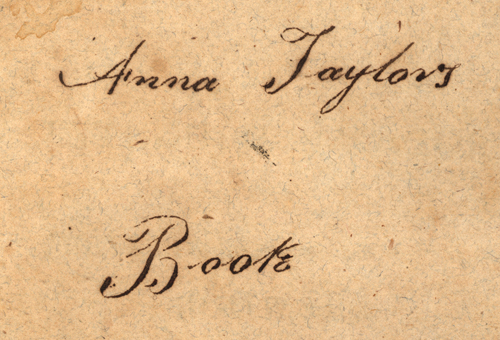 Anna Taylors
Book